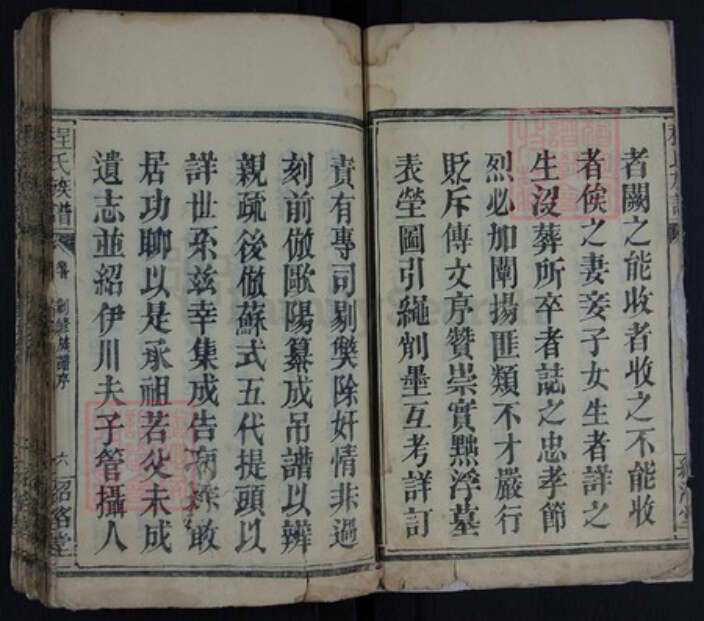 者闕之能收者收之不能收
者俟之妻妾子女生者詳之
生沒葬所卒者誌之忠孝節
烈必加闡揚匪類不才嚴行
貶斥傳文序贊崇實黜浮墓
表塋圖引繩削墨互考詳訂
責有專司剔獘除奸情非過
刻前倣歐陽纂成吊譜以辨
親疏後倣蘇式五代提頭以
詳世系兹幸集成告病族敢
居功聊以是承祖若父未成
遺志並紹伊川夫子管攝人
程氏族譜
卷
創修族譜序
六
紹洛堂